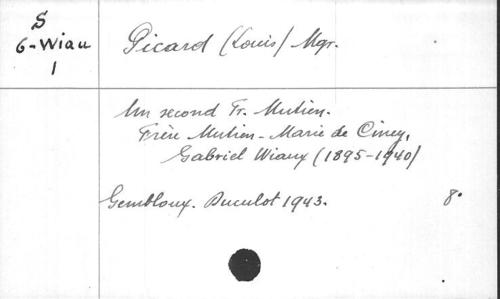 S
6-Wiau
1
Picard (Louis) Mgr.
Un second Fr. Mutien.
Frère Mutien-Marie de Ciney,
Gabriel Wiaux (1895-1940)
Gembloux. Duculot 1943. 8°